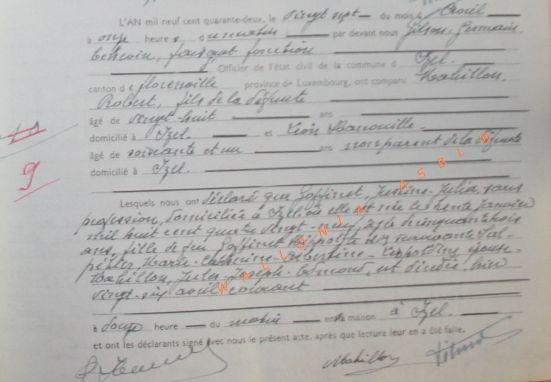 L'AN mil neuf cent quarante-deux, le vingt sept du mois d'Avril
à onze heures du matin par devant nous Gilson, Germain
échevin, faisant fonction
Officier de l'état civil de la commune d Izel
canton de Florenville province de Luxembourg, ont comparu Mahillon,
Robert, fils de la défunte
âgé de vingt huit ans
domicilié à Izel et Louis
âgé de soixante et un ans non parent de la défunte
domicilié à Izel.
9
Lesquels nous ont déclaré que Goffinet, Justine-Julia, sans
profession, domiciliée à Izel où elle est née le trente janvier
mil huit cent quatre vingt-neuf, âgée de cinquante trois
ans, fille de feu Goffinet Hippolyte et de survivante
Marie-Catherine- épouse
Mahillon, Jules-Joseph-Edmond, est décédée, hier
vingt-six avril courant
à douze heure du matin en sa maison à Izel.
et ont les déclarants signé avec nous le présent acte, après que lecture leur en a été faite.
Mahillon
WALLONIA ASBL